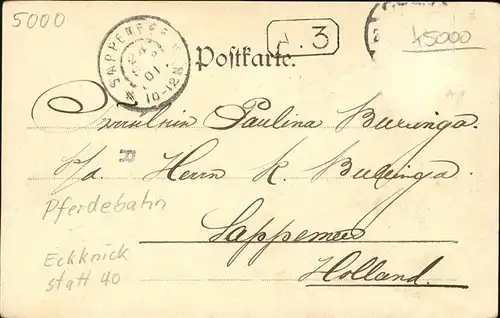 5000
SAPPEMEER
24
01
10-12
Postkarte.
A.3
45000
Fräulein Paulina Buringa.
p/a. Herrn K. Buringa.
Pferdebahn
Sappemeer
Eckknick
statt 40
Holland.